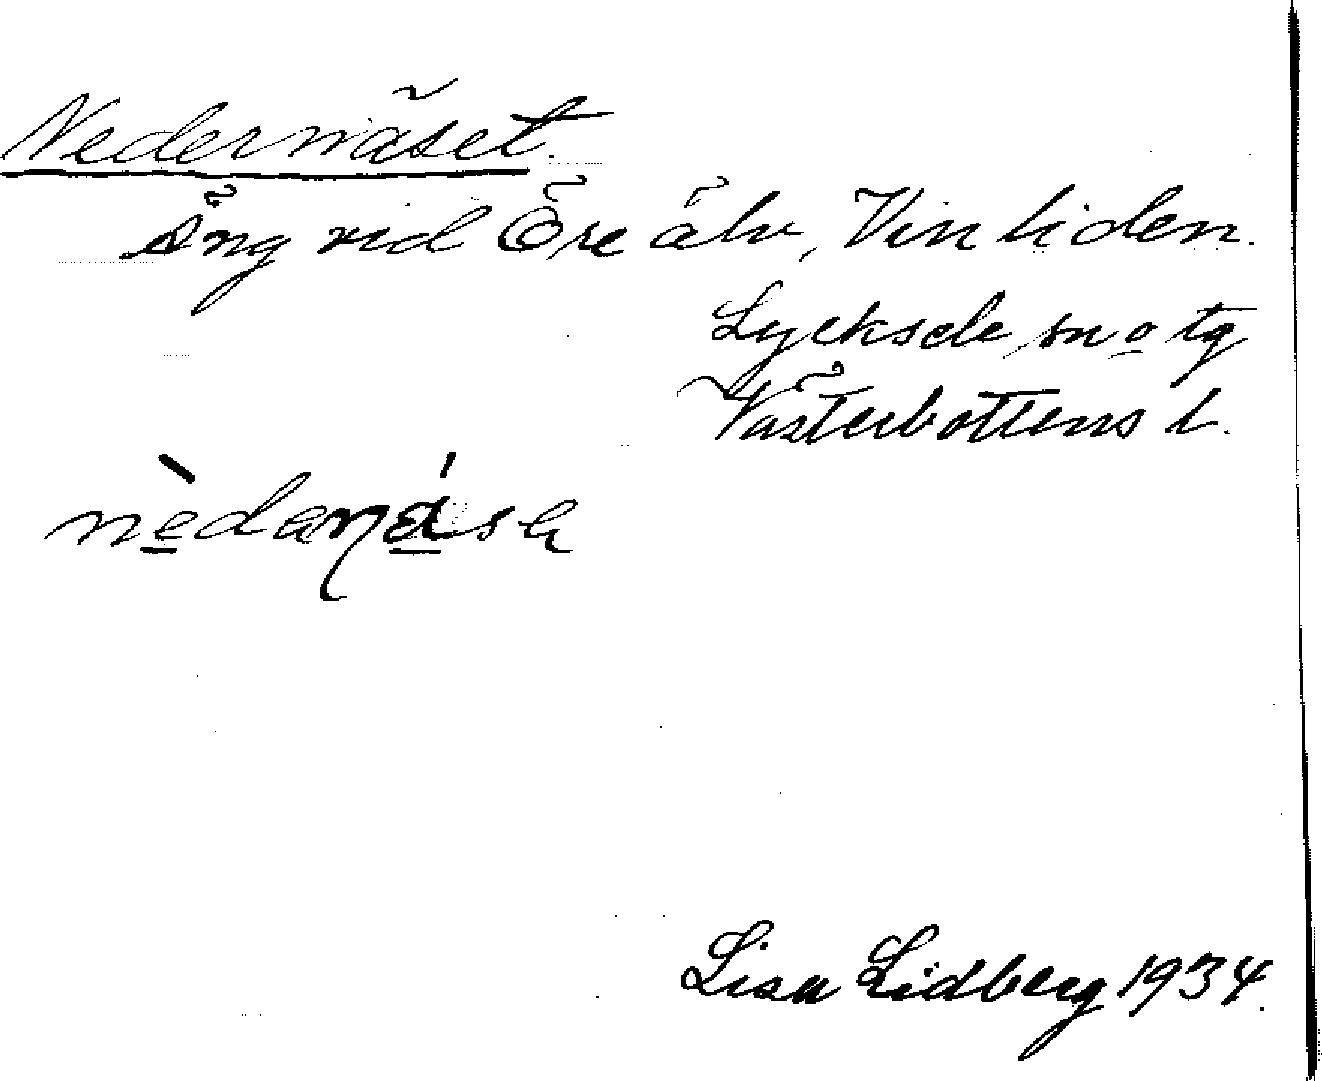 Nedernäset.
Äng vid Öre älv, Vinliden.
Lycksele sn o tg
Västerbottens l.
nèdaŋásɐ
Lisa Lidberg 1934.